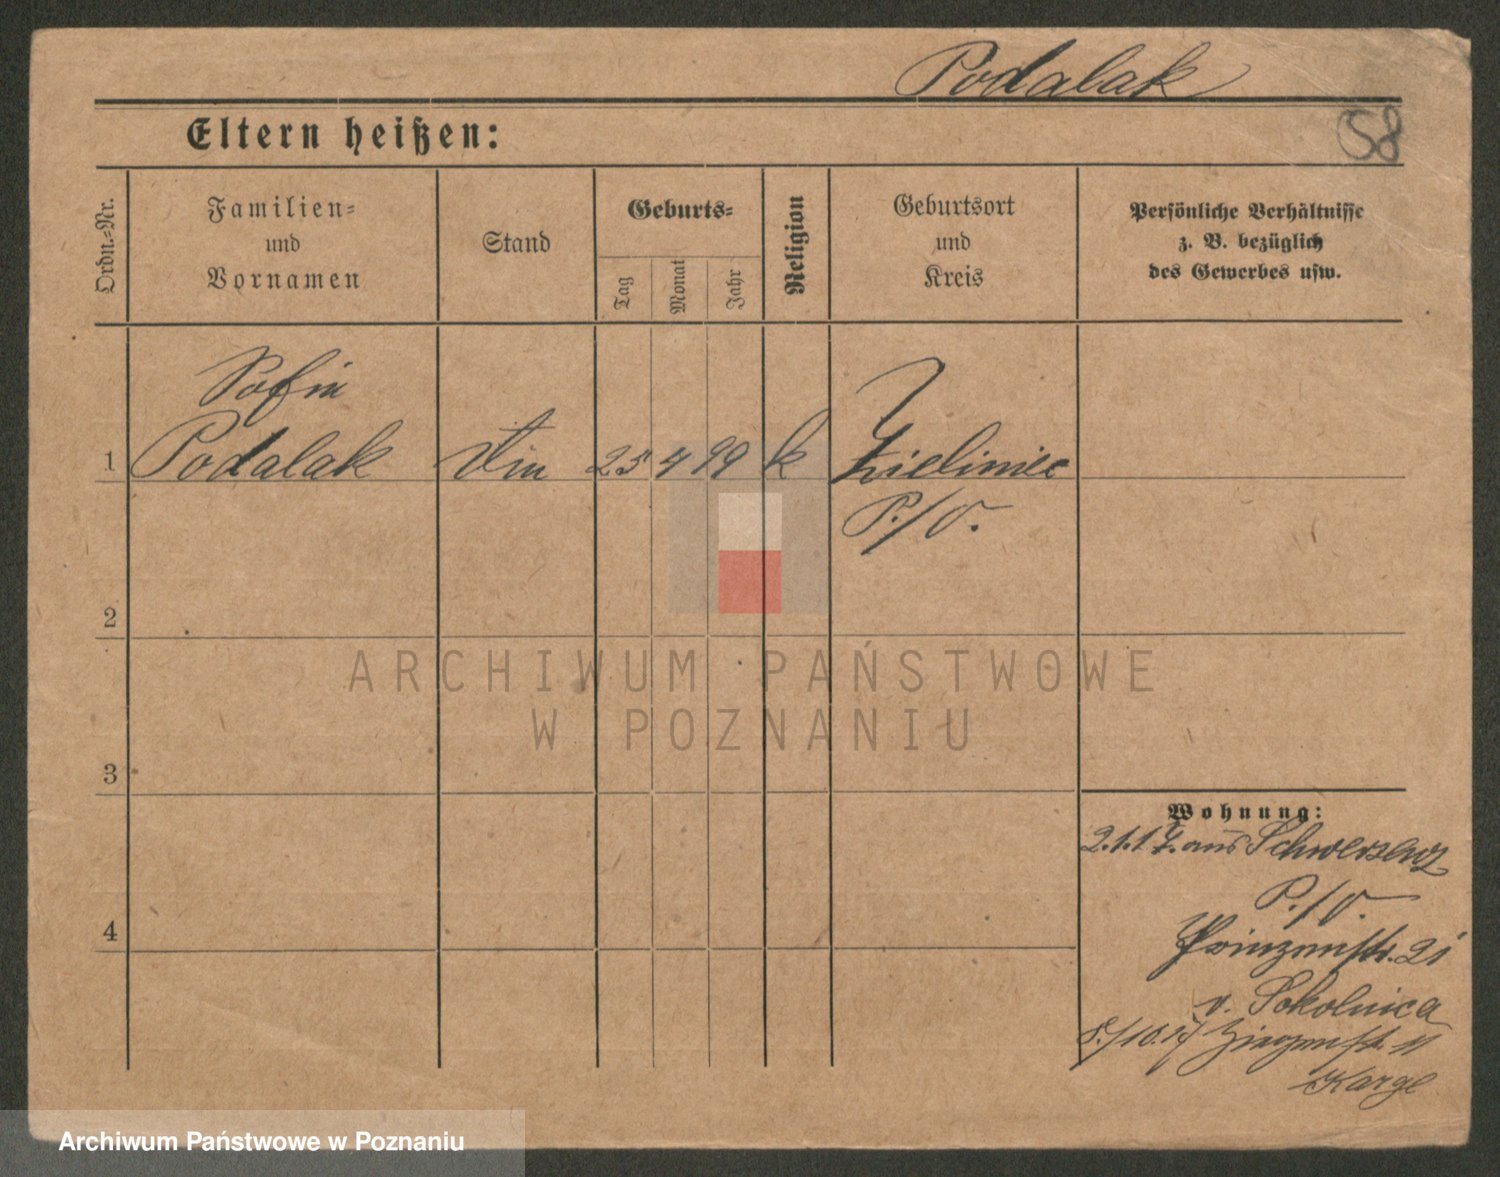 Podalak
58
Eltern heißen:
Ordn.-Nr.
Familien-
und
Vornamen
Stand
Geburts-
Tag
Monat
Jahr
Religion
Geburtsort
und
Kreis
Persönliche Verhältnisse
z. B. bezüglich
des Gewerbes usw.
Sofia
1 Podalak 25 4 99 k Zieliniec
P./O.
2
ARCHIWUM PAŃSTWOWE
W POZNANIU
3
Wohnung:
2.1.17. aus Schwersenz
P./O.
Prinzenstr. 21
v. Sokolnica
8./10.17
Karge
4
Archiwum Państwowe w Poznaniu